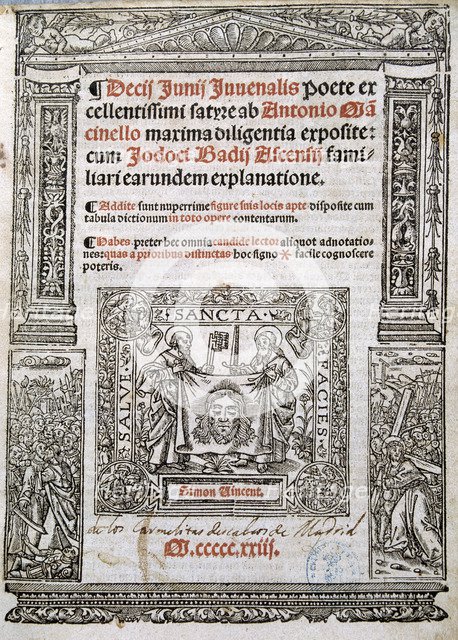 ¶Decij Junij Juuenalis poete ex
cellentissimi satyre ab Antonio Mã
cinello maxima diligentia exposite:
cum Jodoci Badij Ascensij fami-
liari earundem explanatione.
¶Addite sunt nuperrime figure suis locis apte disposite cum
tabula dictionum in toto opere contentarum.
¶Habes preter hec omnia candide lector aliquot adnotatio-
nes: quas a prioribus distinctas hoc signo * facile cognoscere
poteris.
SANCTA
SALVE
FACIES
Simon Vincent.
de los Carmelitas descalços de Madrid
M.ccccc.xxiij.